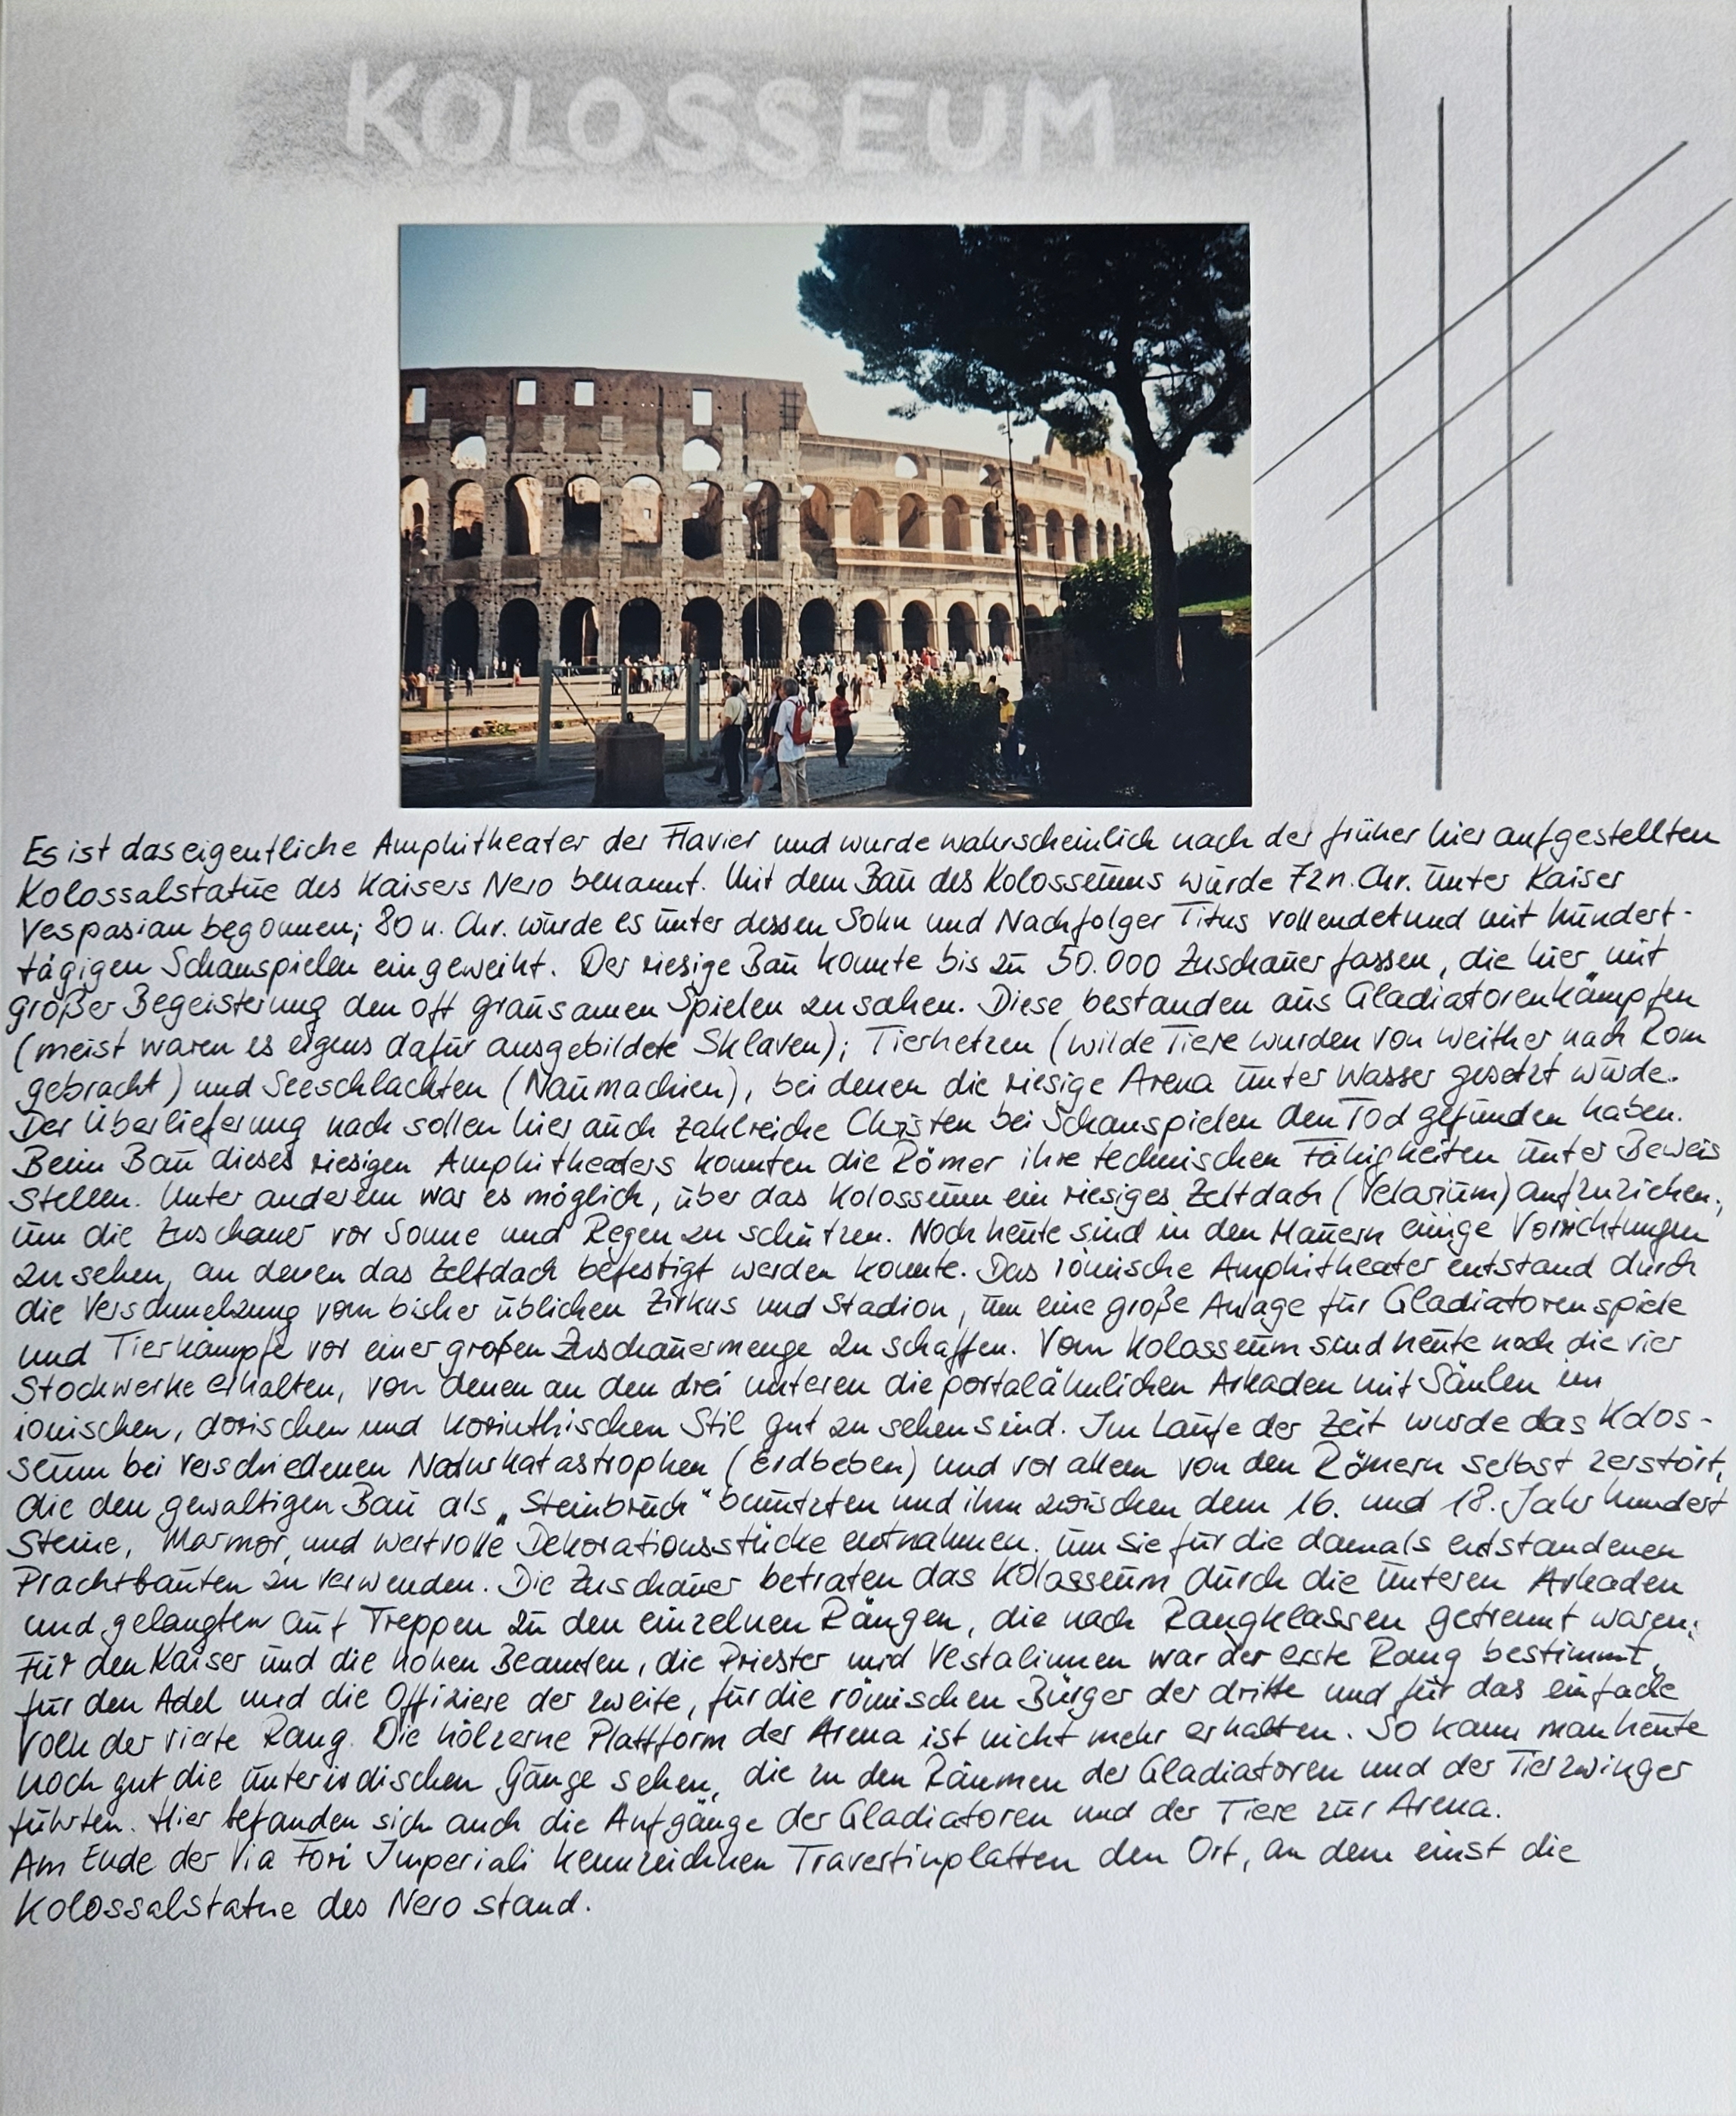 KOLOSSEUM
Es ist das eigentliche Amphitheater der Flavier und wurde wahrscheinlich nach der früher hier aufgestellten
Kolossalstatue des Kaisers Nero benannt. Mit dem Bau des Kolosseums wurde 72 n. Chr. unter Kaiser
Vespasian begonnen; 80 n. Chr. wurde es unter dessen Sohn und Nachfolger Titus vollendet und mit hundert-
tägigen Schauspielen eingeweiht. Der riesige Bau konnte bis zu 50.000 Zuschauer fassen, die hier mit
großer Begeisterung den oft grausamen Spielen zusahen. Diese bestanden aus Gladiatorenkämpfen
(meist waren es eigens dafür ausgebildete Sklaven); Tierhetzen (wilde Tiere wurden von weither nach Rom
gebracht) und Seeschlachten (Naumachien), bei denen die riesige Arena unter Wasser gesetzt wurde.
Der Überlieferung nach sollen hier auch zahlreiche Christen bei Schauspielen den Tod gefunden haben.
Beim Bau dieses riesigen Amphitheaters konnten die Römer ihre technischen Fähigkeiten unter Beweis
stellen. Unter anderem war es möglich, über das Kolosseum ein riesiges Zeltdach (Velarium) aufzuziehen,
um die Zuschauer vor Sonne und Regen zu schützen. Noch heute sind in den Mauern einige Vorrichtungen
zu sehen, an denen das Zeltdach befestigt werden konnte. Das römische Amphitheater entstand durch
die Verschmelzung vom bisher üblichen Zirkus und Stadion, um eine große Anlage für Gladiatorenspiele
und Tierkämpfe vor einer großen Zuschauermenge zu schaffen. Vom Kolosseum sind heute noch die vier
Stockwerke erhalten, von denen an den drei unteren die portalähnlichen Arkaden mit Säulen im
ionischen, dorischen und korinthischen Stil gut zu sehen sind. Im Laufe der Zeit wurde das Kolos-
seum bei verschiedenen Naturkatastrophen (Erdbeben) und vor allem von den Römern selbst zerstört,
die den gewaltigen Bau als „Steinbruch" benutzten und ihm zwischen dem 16. und 18. Jahrhundert
Steine, Marmor und wertvolle Dekorationsstücke entnahmen, um sie für die damals entstandenen
Prachtbauten zu verwenden. Die Zuschauer betraten das Kolosseum durch die unteren Arkaden
und gelangten auf Treppen zu den einzelnen Rängen, die nach Rangklassen getrennt waren:
Für den Kaiser und die hohen Beamten, die Priester und Vestalinnen war der erste Rang bestimmt,
für den Adel und die Offiziere der zweite, für die römischen Bürger der dritte und für das einfache
Volk der vierte Rang. Die hölzerne Plattform der Arena ist nicht mehr erhalten. So kann man heute
noch gut die unterirdischen Gänge sehen, die zu den Räumen der Gladiatoren und der Tierzwinger
führten. Hier befanden sich auch die Aufgänge der Gladiatoren und der Tiere zur Arena.
Am Ende der Via Fori Imperiali kennzeichnen Travertinplatten den Ort, an dem einst die
Kolossalstatue des Nero stand.